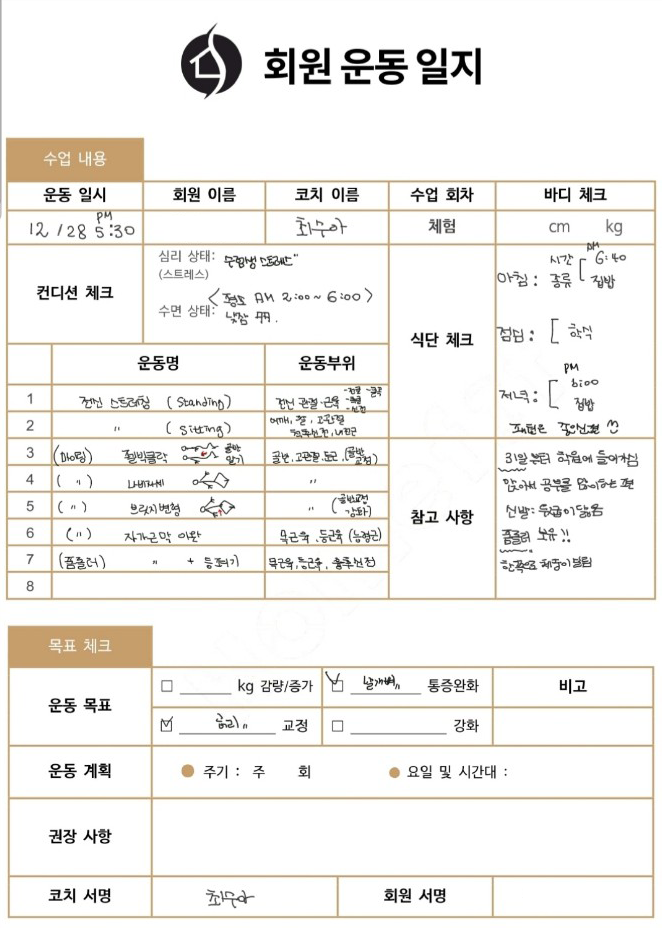 회원 운동 일지
수업 내용
운동 일시 회원 이름 코치 이름 수업 회차 바디 체크
12 / 28 PM 5:30 최수아 체험 cm kg
컨디션 체크
심리 상태: 수험생 스트레스"
(스트레스)
수면 상태: <평소 AM 2:00 ~ 6:00>
낮잠
식단 체크
아침: 시간 AM 6:40
종류 집밥
점심: 학식
저녁: PM 6:00
집밥
운동명 운동부위
1 전신 스트레칭 (Standing) 전신 관절·근육
2 " (Sitting) 어깨, 고관절
3 (매트) 골반 골반, 고관절
4 ( " ) 나비자세 "
5 ( " ) 브릿지변형 " (골반교정 강화)
6 ( " ) 자가근막 이완 목근육, 등근육
7 (폼롤러) " + 등펴기 목근육, 등근육, 흉추신전
8
참고 사항
31일부터 학원에 들어가심
앉아서 공부를 많이하는 편
신발:
폼롤러 보유!!
한쪽으로 체중이 쏠림
목표 체크
운동 목표
kg 감량/증가
날개뼈 " 통증완화
비고
허리 " 교정
강화
운동 계획 주기 : 주 회 요일 및 시간대 :
권장 사항
코치 서명 최수아 회원 서명